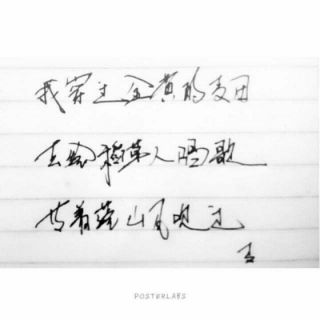 我穿过金黄的麦田
去给稻草人唱歌
等着落山风吹过
POSTERLABS